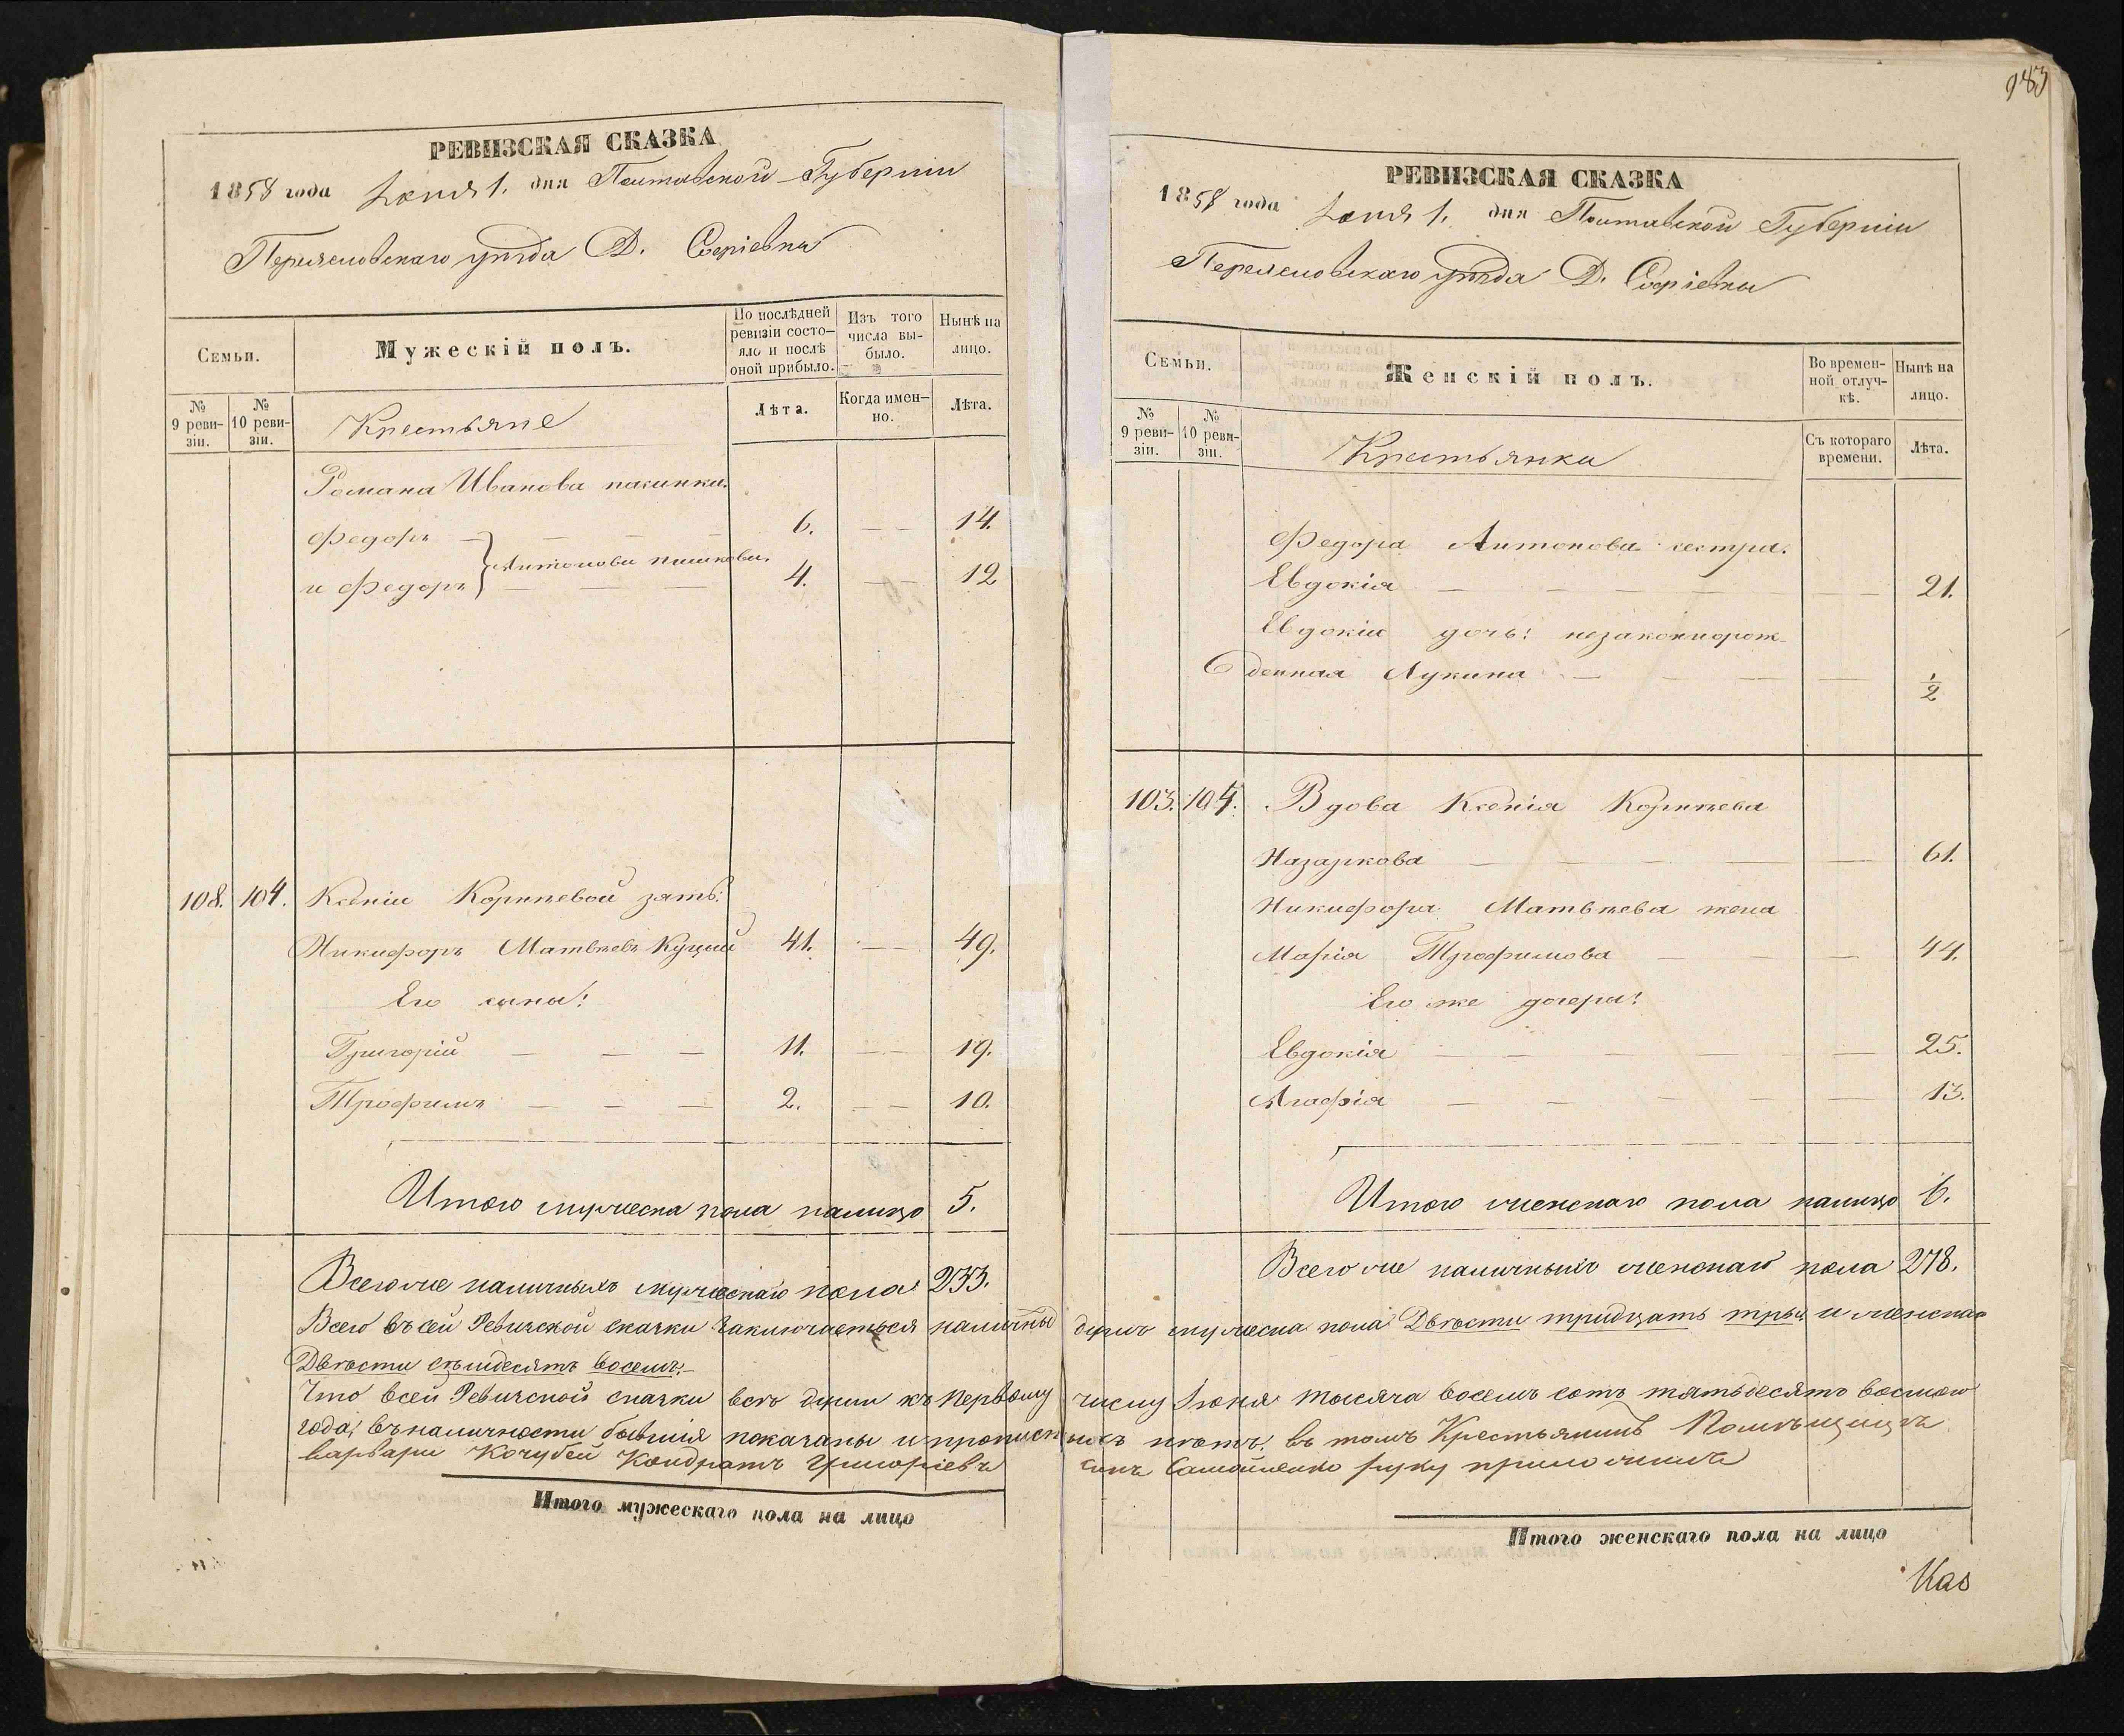 РЕВИЗСКАЯ СКАЗКА
1858 года Іюня 1. дня Полтавской Губерніи
Переяславскаго уѣзда Д. Софіевки
Семьи.
Мужескій полъ.
По послѣдней ревизіи состо-
яло и послѣ оной прибыло.
Изъ того числа вы-
было.
Нынѣ на лицо.
№ 9 реви-
зіи.
№ 10 реви-
зіи.
Крестьяне
Лѣта.
Когда имен-
но.
Лѣта.
Романа Иванова пасинки.
Федоръ — 6. — 14.
и Федоръ } Антонови — 4. — 12
108. 104. Ксеніи Корнѣевой зять:
Никифоръ Матвѣевъ Куцый 41. — 49.
Его сыны:
Григорій — 11. — 19.
Трофимъ — 2. — 10.
Итого мужеска пола налицо 5.
Всего же наличныхъ мужескаго пола 233.
Итого мужескаго пола на лицо
983
РЕВИЗСКАЯ СКАЗКА
1858 года Іюня 1. дня Полтавской Губерніи
Переяславскаго уѣзда Д. Софіевки
Семьи.
Женскій полъ.
Во времен-
ной отлуч-
кѣ.
Нынѣ на лицо.
№ 9 реви-
зіи.
№ 10 реви-
зіи.
Крестьянки
Съ котораго времени.
Лѣта.
Федора Антонова сестра.
Евдокія — 21.
Евдокіи дочь: незаконнорож-
денная Лукина — 1/2
103. 104. Вдова Ксенія Корнѣева
Назаркова — 61.
Никифора Матвѣева жена
Марія Трофимова — 44.
Его же дочери:
Евдокія — 25.
Агафія — 13.
Итого женскаго пола налицо 6.
Всего же наличныхъ женскаго пола 278.
Всего въ сей Ревизской сказки заключаеться наличны душъ мужеска пола Двѣсти тридцать тры, и женскаго
Двѣсти семьдесятъ восемь.
Что всей Ревизской сказки всѣ души къ первому числу Іюня тысяча восемь сотъ пятьдесятъ восмого
года, въ наличности бывшія показаны и прописныхъ нѣтъ. въ томъ Крестьянинъ Помѣщицъ
варвари Кочубей Кондратъ Григоріевъ сынъ Самойленко руку приложилъ
Итого женскаго пола на лицо
Каз